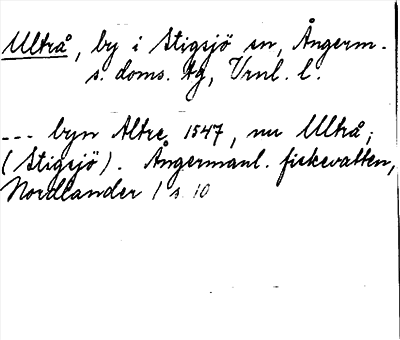 Ultrå, by i Stigsjö sn, Ångerm.
s. doms. tg, Vrnl. l.
--- byn Altre 1547, nu Ultrå,
(Stigsjö). Ångermanl. fiskevatten,
Nordlander 1 s. 10